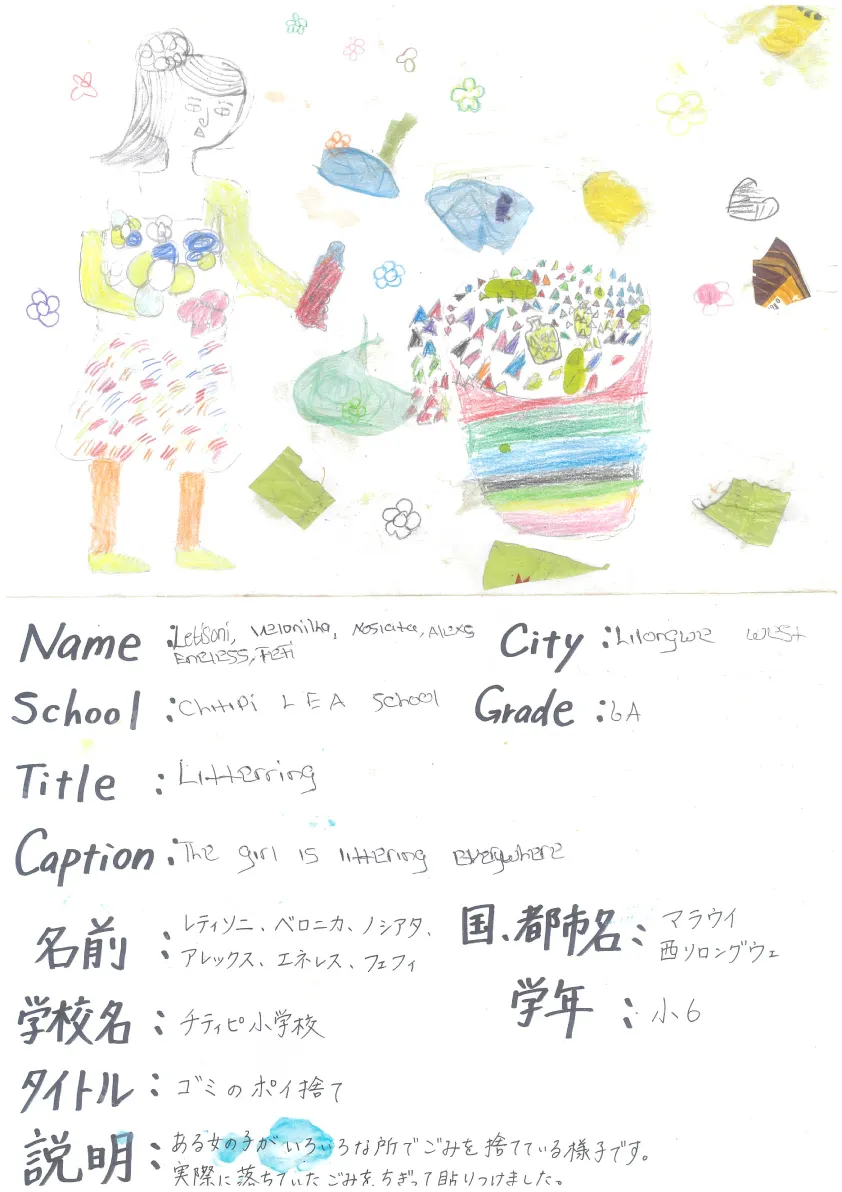 Name : Letisoni, Velonika, Nosiata, Alexs
Eneless, Fefi
City : Lilongwe west
School : Chitipi L E A School
Grade : 6A
Title : Litterring
Caption : The girl is littering everywhere
名前 : レティソニ、ベロニカ、ノシアタ、
アレックス、エネレス、フェフィ
国、都市名 : マラウイ
西リロングウェ
学校名 : チティピ小学校
学年 : 小6
タイトル : ゴミのポイ捨て
説明 : ある女の子がいろいろな所でごみを捨てている様子です。
実際に落ちていたごみをちぎって貼りつけました。